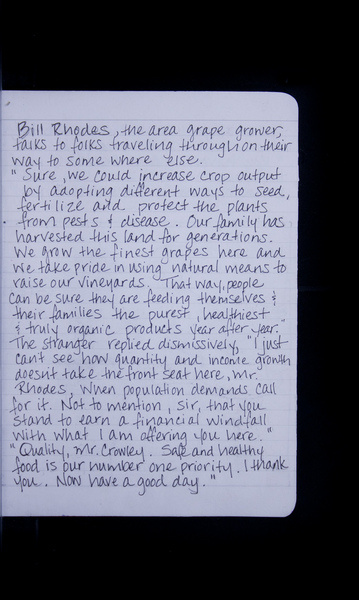 Bill Rhodes, the area grape grower,
talks to folks traveling through on their
way to some where else.
" Sure, we could increase crop output
by adopting different ways to seed,
fertilize and protect the plants
from pests & disease. Our family has
harvested this land for generations.
We grow the finest grapes here and
we take pride in using natural means to
raise our vineyards. That way, people
can be sure they are feeding themselves &
their families the purest, healthiest
& truly organic products year after year."
The stranger replied dismissively, "I just
can't see how quantity and income growth
doesn't take the front seat here, Mr.
Rhodes, when population demands call
for it. Not to mention, sir, that you
stand to earn a financial windfall
with what I am offering you here."
"Quality, Mr. Crowley. Safe and healthy
food is our number one priority. I thank
you. Now have a good day."